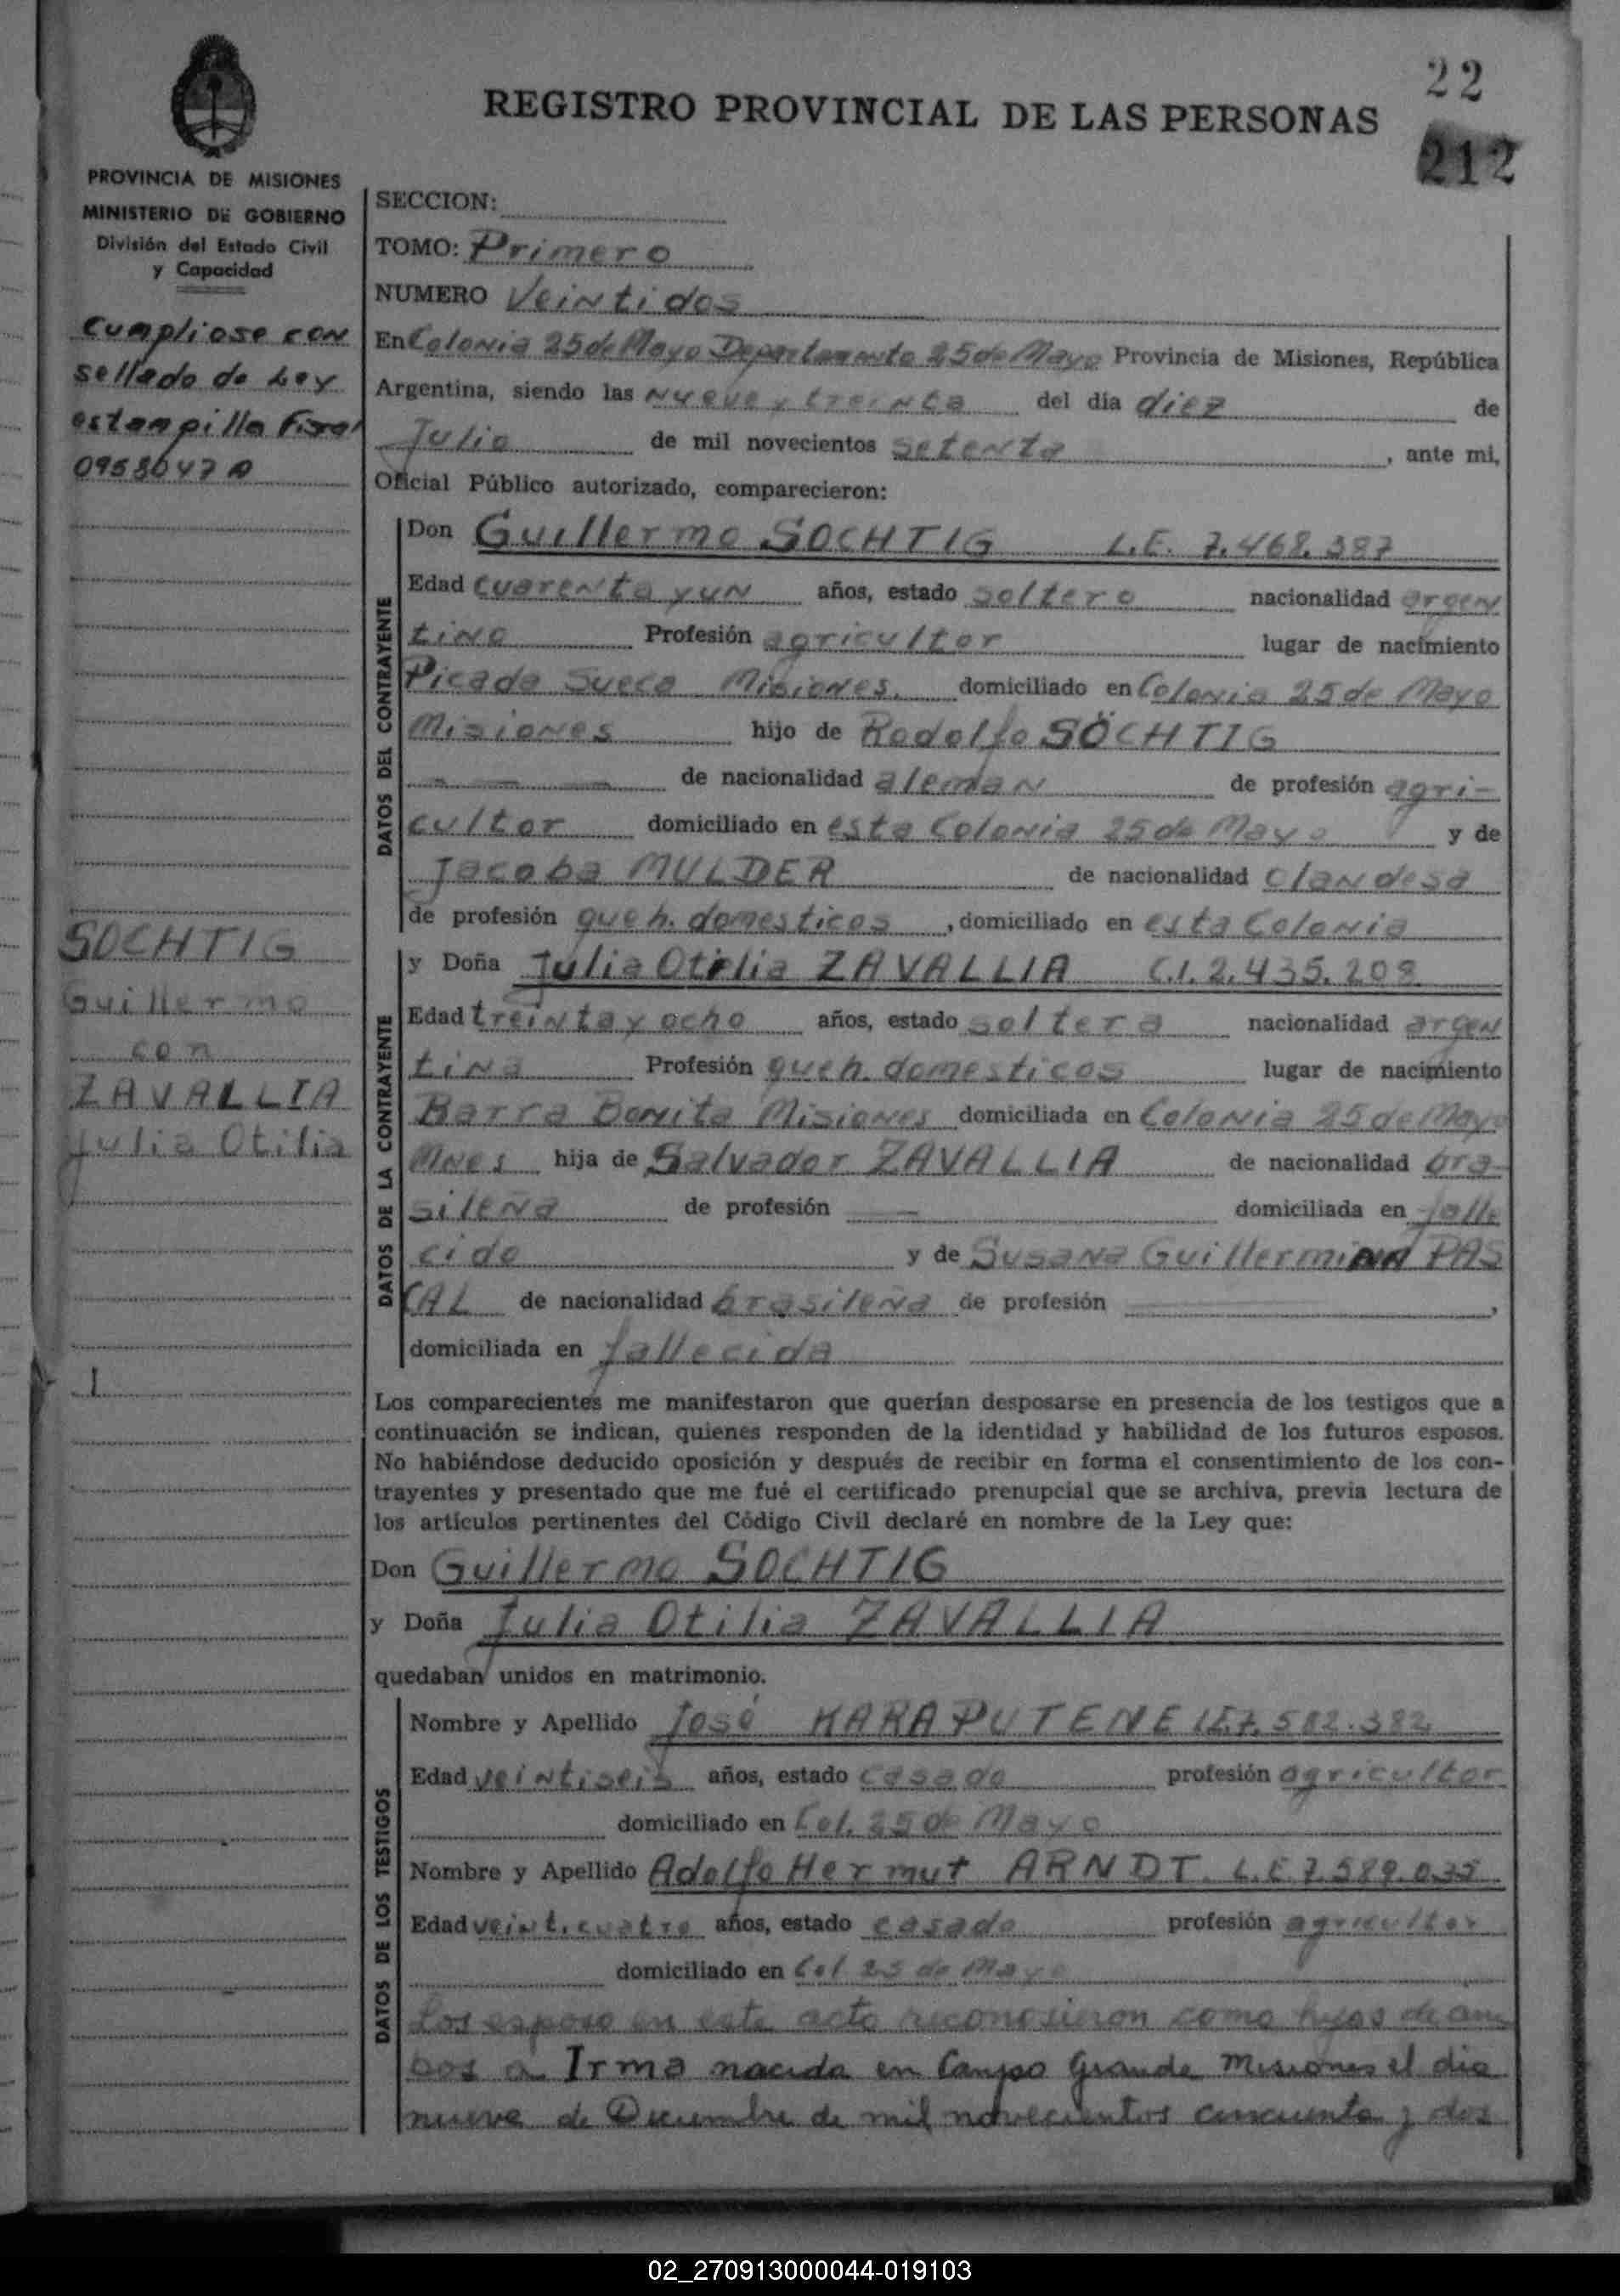 22
REGISTRO PROVINCIAL DE LAS PERSONAS
212
PROVINCIA DE MISIONES
MINISTERIO DE GOBIERNO
División del Estado Civil
y Capacidad
Cumpliose con
sellado de Ley
estampilla Fiscal
SOCHTIG
Guillermo
con
ZAVALLIA
Julia Otilia
SECCION:
TOMO: Primero
NUMERO Veintidos
En Colonia 25 de Mayo Departamento 25 de Mayo Provincia de Misiones, República
Argentina, siendo las nueve y treinta del día diez de
Julio de mil novecientos setenta, ante mi,
Oficial Público autorizado, comparecieron:
DATOS DEL CONTRAYENTE
Don Guillermo SOCHTIG L.E. 7.468.387
Edad cuarenta y un años, estado soltero nacionalidad argen
tino Profesión agricultor lugar de nacimiento
Picada Sueca Misiones. domiciliado en Colonia 25 de Mayo
Misiones hijo de Rodolfo SÖCHTIG
de nacionalidad aleman de profesión agri-
cultor domiciliado en esta Colonia 25 de Mayo y de
Jacoba MULDER de nacionalidad olandesa
de profesión queh. domesticos, domiciliado en esta Colonia
DATOS DE LA CONTRAYENTE
y Doña Julia Otilia ZAVALLIA C.I. 2.435.208
Edad treinta y ocho años, estado soltera nacionalidad argen
tina Profesión queh. domesticos lugar de nacimiento
Barra Bonita Misiones domiciliada en Colonia 25 de Mayo
Mnes hija de Salvador ZAVALLIA de nacionalidad bra-
sileña de profesión — domiciliada en falle
cido y de Susana Guillermina PAS
CAL de nacionalidad brasileña de profesión ,
domiciliada en fallecida
Los comparecientes me manifestaron que querían desposarse en presencia de los testigos que a
continuación se indican, quienes responden de la identidad y habilidad de los futuros esposos.
No habiéndose deducido oposición y después de recibir en forma el consentimiento de los con-
trayentes y presentado que me fué el certificado prenupcial que se archiva, previa lectura de
los artículos pertinentes del Código Civil declaré en nombre de la Ley que:
Don Guillermo SOCHTIG
y Doña Julia Otilia ZAVALLIA
quedaban unidos en matrimonio.
DATOS DE LOS TESTIGOS
Nombre y Apellido José KARAPUTENE
Edad veintiseis años, estado casado profesión agricultor
domiciliado en Col. 25 de Mayo
Nombre y Apellido Adolfo Hermut ARNDT. L.E. 7.589.035
Edad veinticuatro años, estado casado profesión agricultor
domiciliado en Col 25 de Mayo
Los esposo en este acto reconosieron como hijos de am
bos a Irma nacida en Campo Grande Misiones el dia
nueve de Diciembre de mil novecientos cincuenta y dos
02_270913000044-019103